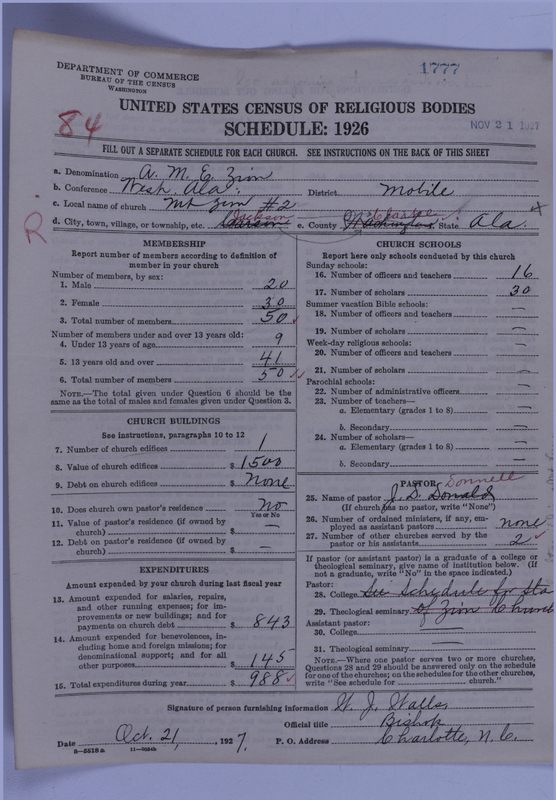 1777
DEPARTMENT OF COMMERCE
BUREAU OF THE CENSUS
WASHINGTON
UNITED STATES CENSUS OF RELIGIOUS BODIES
84
SCHEDULE: 1926
NOV 21 1927
FILL OUT A SEPARATE SCHEDULE FOR EACH CHURCH. SEE INSTRUCTIONS ON THE BACK OF THIS SHEET
a. Denomination A. M. E. Zion
b. Conference West Ala. District Mobile
c. Local name of church Mt Zion #2
R.
d. City, town, village, or township, etc. Carson Jackson e. County Washington State Ala.
MEMBERSHIP
Report number of members according to definition of
member in your church
Number of members, by sex:
1. Male 20
2. Female 30
3. Total number of members 50
Number of members under and over 13 years old:
4. Under 13 years of age 9
5. 13 years old and over 41
6. Total number of members 50
NOTE.—The total given under Question 6 should be the
same as the total of males and females given under Question 3.
CHURCH BUILDINGS
See instructions, paragraphs 10 to 12
7. Number of church edifices 1
8. Value of church edifices $ 1500
9. Debt on church edifices $ None
10. Does church own pastor's residence No
Yes or No
11. Value of pastor's residence (if owned by
church) $ —
12. Debt on pastor's residence (if owned by
church) $ —
EXPENDITURES
Amount expended by your church during last fiscal year
13. Amount expended for salaries, repairs,
and other running expenses; for im-
provements or new buildings; and for
payments on church debt $ 843
14. Amount expended for benevolences, in-
cluding home and foreign missions; for
denominational support; and for all
other purposes $ 145
15. Total expenditures during year $ 988
CHURCH SCHOOLS
Report here only schools conducted by this church
Sunday schools:
16. Number of officers and teachers 16
17. Number of scholars 30
Summer vacation Bible schools:
18. Number of officers and teachers —
19. Number of scholars —
Week-day religious schools:
20. Number of officers and teachers —
21. Number of scholars —
Parochial schools:
22. Number of administrative officers —
23. Number of teachers—
a. Elementary (grades 1 to 8) —
b. Secondary —
24. Number of scholars—
a. Elementary (grades 1 to 8) —
b. Secondary —
PASTOR Donnell
25. Name of pastor J. D. Donald
(If church has no pastor, write "None")
26. Number of ordained ministers, if any, em-
ployed as assistant pastors none
27. Number of other churches served by the
pastor or his assistants 2
If pastor (or assistant pastor) is a graduate of a college or
theological seminary, give name of institution below. (If
not a graduate, write "No" in the space indicated.)
Pastor:
28. College See Schedule for Sta
29. Theological seminary of Zion Church
Assistant pastor:
30. College —
31. Theological seminary —
NOTE.—Where one pastor serves two or more churches,
Questions 28 and 29 should be answered only on the schedule
for one of the churches; on the schedules for the other churches,
write "See schedule for church."
Signature of person furnishing information W. J. Walls
Official title Bishop
Date Oct. 21, 1927. P. O. Address Charlotte, N. C.